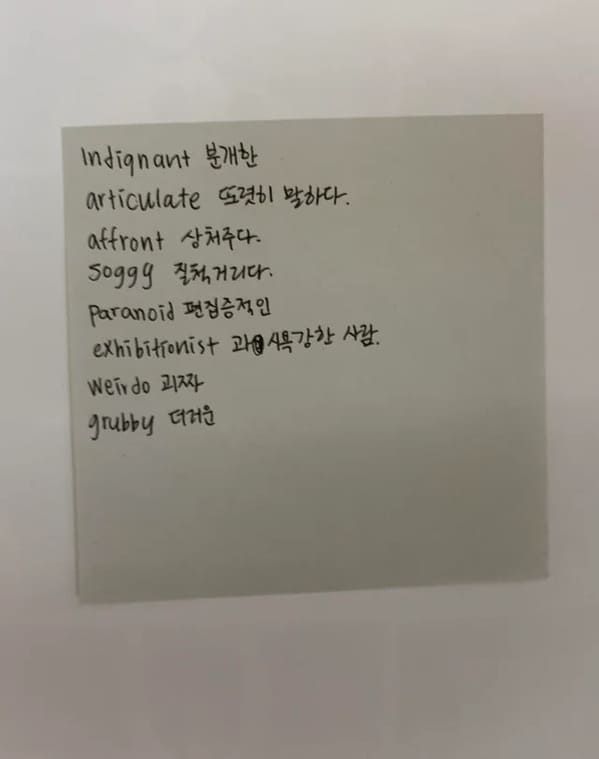 Indignant 분개한
articulate 또렷히 말하다.
affront 상처주다.
soggy 질척거리다.
paranoid 편집증적인
exhibitionist 과시욕강한 사람.
weirdo 괴짜
grubby 더러운